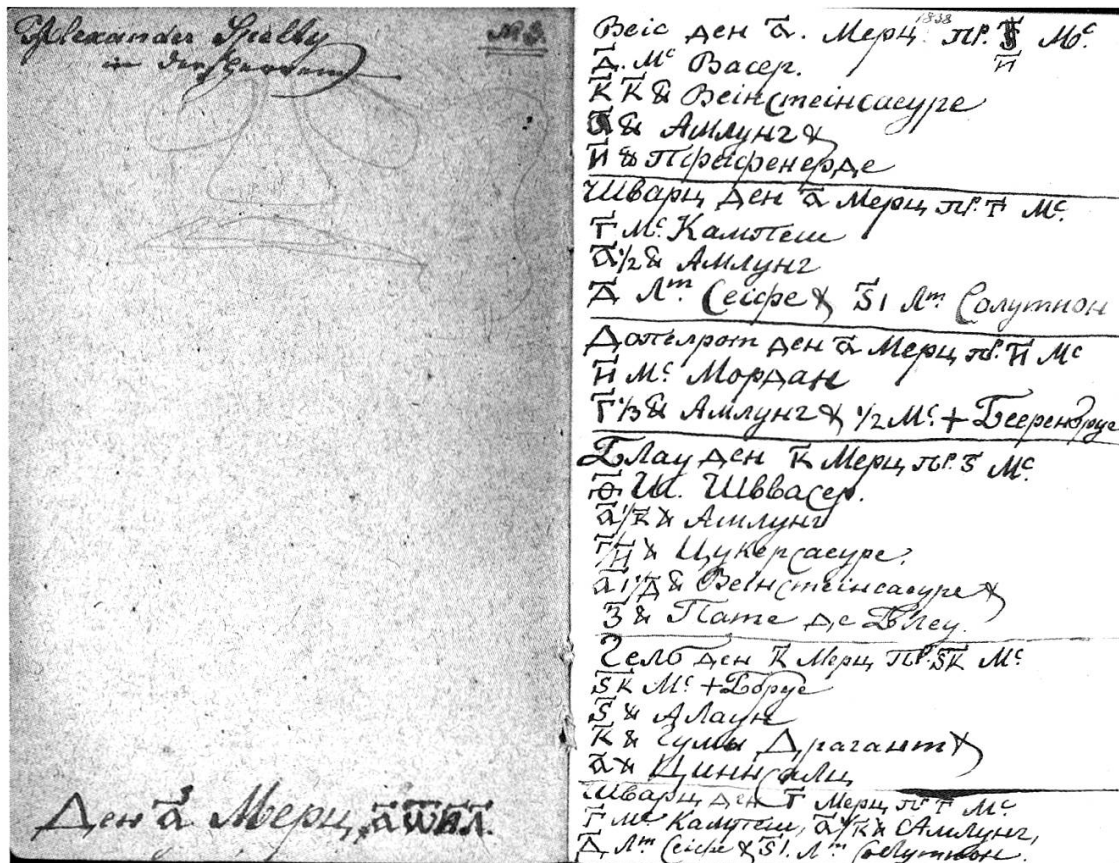 Alexander Spelty
in der Herren
№ 3.
Ден а҃ Мерц, а҃ѿ҃и҃л҃.
Веіс ден а҃. Мерц 1838 пр. и҃ Мс.
Д҃. Мс Васер.
К҃ К҃ ℔ Веінстеінсаеуре
℔ Амлунг &
И҃ ℔ Пфеіфенерде
Шварц ден а҃ Мерц пр. Г҃ Мс
Г҃ Мс Кампеш
а҃ 1/2 ℔ Амлунг
Д҃ Лт. Сеіфе & Ѕ҃ І Лт. Солутион
Допелрот ден а҃ Мерц пр. И҃ Мс
И҃ Мс Мордан
Г҃ 1/3 ℔ Амлунг & 1/2 Мс + Бееренбруе
Блау ден К҃ Мерц пр. Ѕ҃ Мс
Ѳ҃ Ш. Шввасер.
а҃ 1/К҃ ℔ Амлунг
Г҃/И҃ ℔ Цукерсаеуре.
а҃ 1/Д҃ ℔ Веінстеінсаеуре &
З҃ ℔ Пате де Блеу.
Гелб ден К҃ Мерц пр. Ѕ҃К҃ Мс
Ѕ҃К҃ Мс + Бруе
Ѕ҃ ℔ Алаун
К҃ ℔ Гумы Драгант &
а҃ ℔ Циннсалц
Шварц ден Г҃ Мерц пр Г҃ Мс
Г҃ Мс Кампеш, а҃ 1/К҃ ℔ Амлунг,
Д҃ Лт Сеіфе & Ѕ҃І. Лт Солутион.